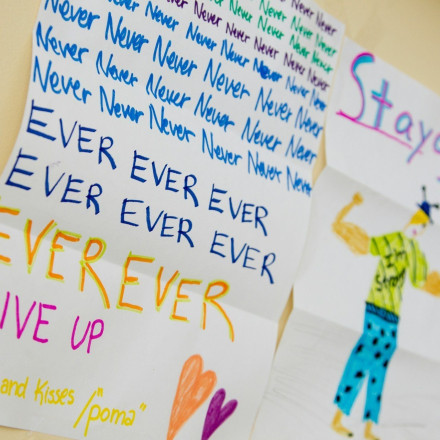 Never Never Never
Never Never Never Never
Never Never Never Never Never
Never Never Never Never Never Never
Never Never Never Never Never Never
Never Never Never Never Never Never
Never Never Never Never Never Never
EVER EVER EVER
EVER EVER EVER EVER
EVER EVER
IVE UP
and Kisses /"poma"
Stay
I'm
Strong